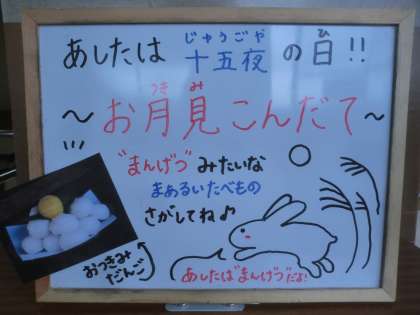 あしたは 十五夜 の日!!
じゅうごや
ひ
~お月見こんだて~
つき み
"まんげつ"みたいな
まあるいたべもの
さがしてね♪
おつきみ
だんご
あしたは"まんげつ"だよ!